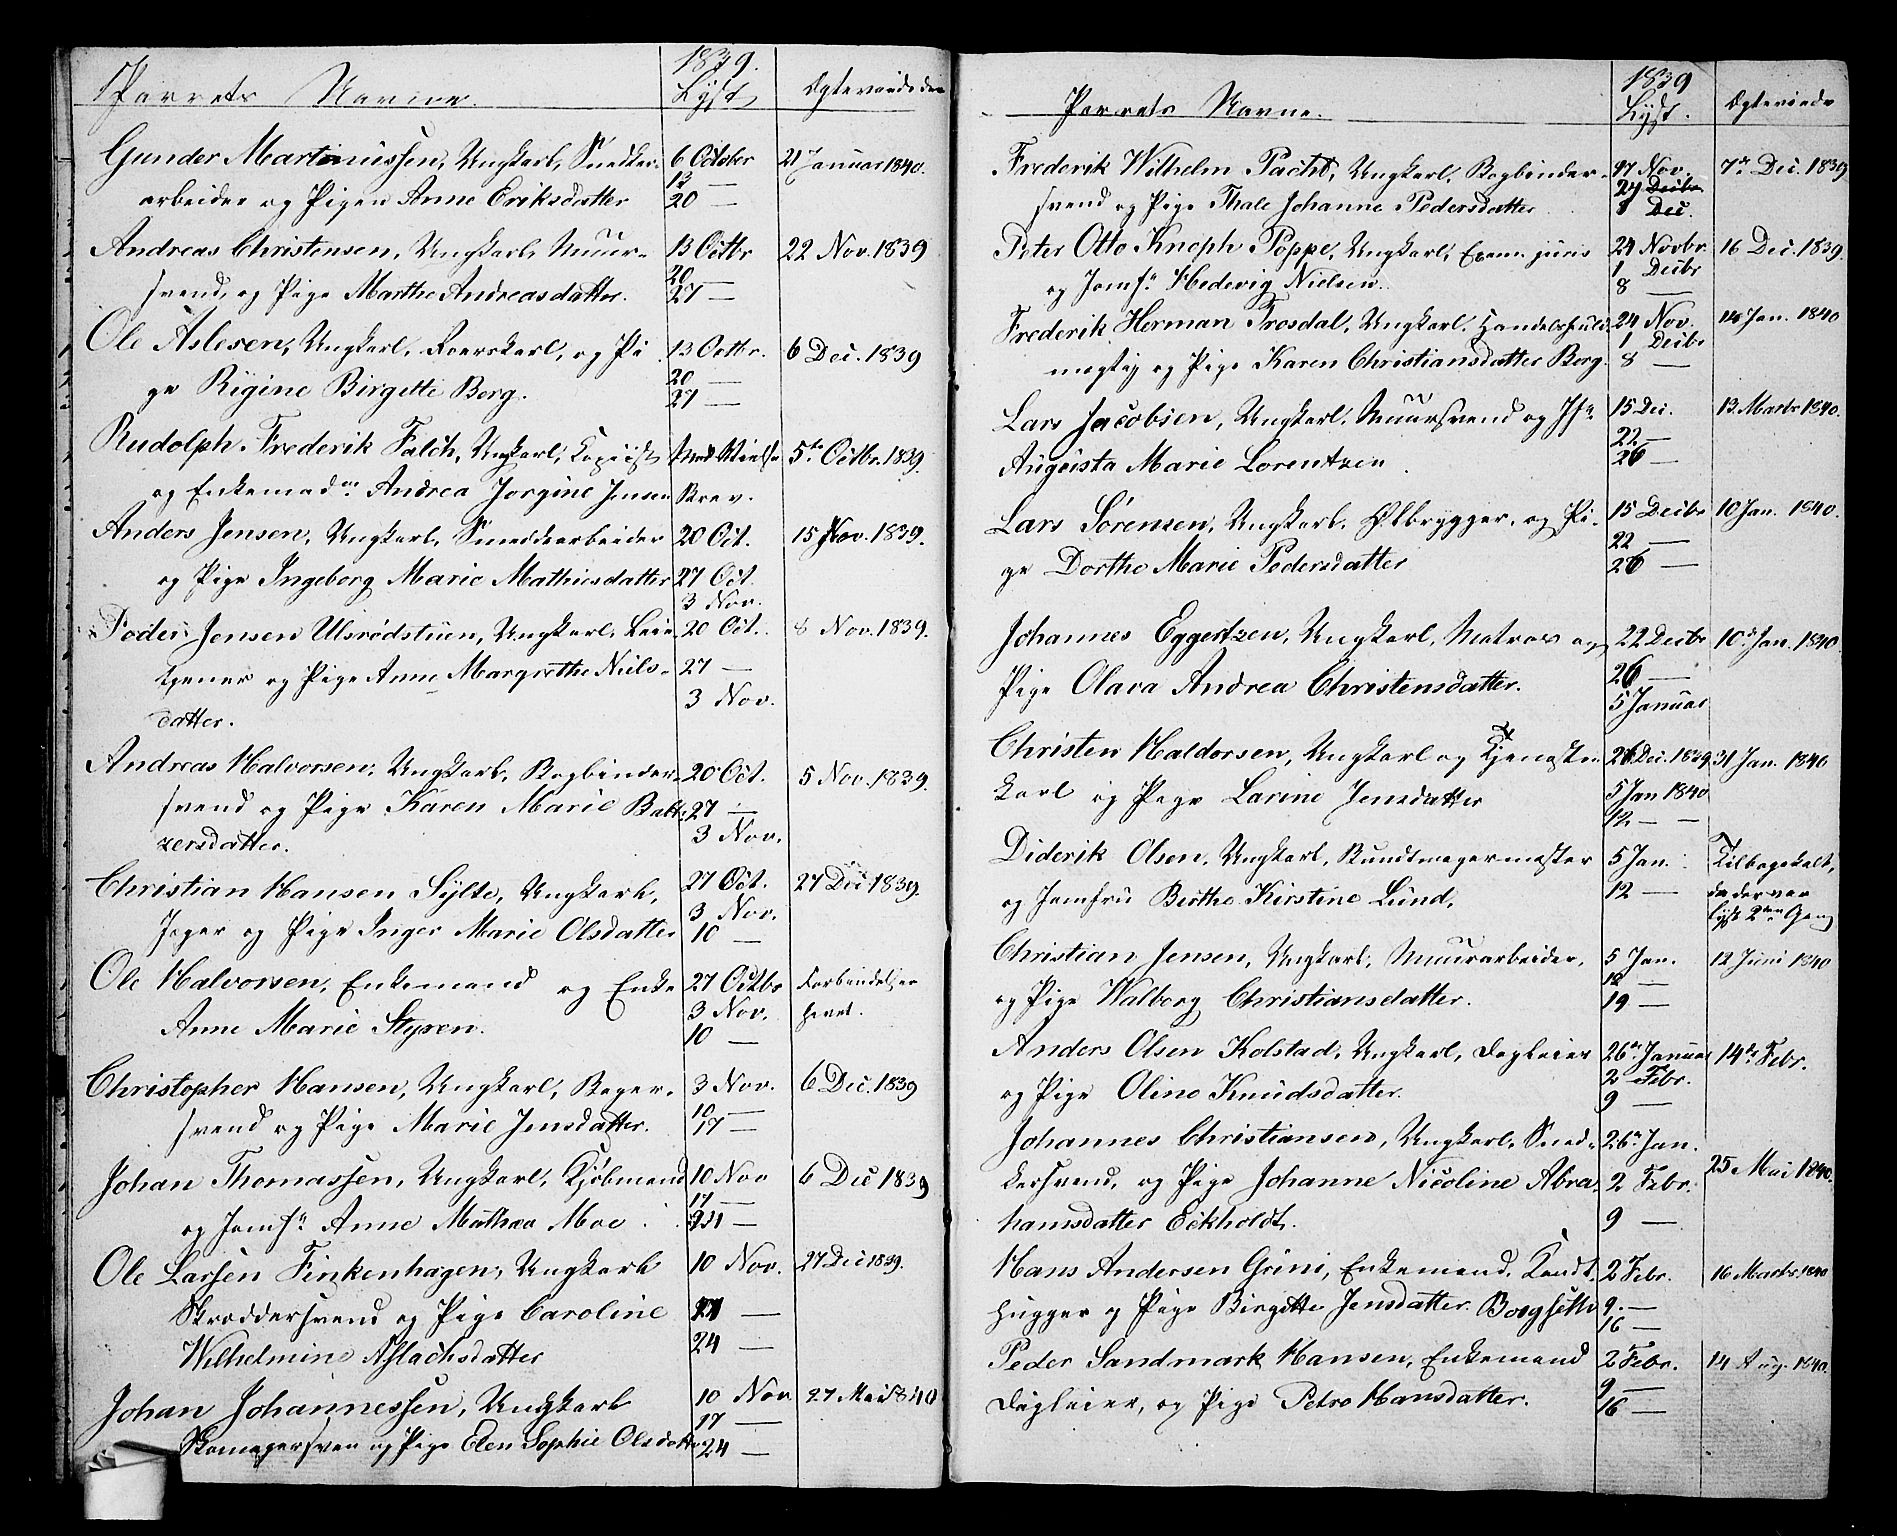 Parrets Navne. 1839. Lyst Ægteviede den
Gunder Martinussen, Ungkarl, Snedker- 6 October 21 Januar 1840.
arbeider og Pigen Anne Eriksdatter 13 — 20 —
Andreas Christensen, Ungkarl, Muur- 13 Octbr 22 Nov. 1839
svend, og Pige Marthe Andreasdatter. 20 — 27 —
Ole Aslesen, Ungkarl, Roerskarl, og Pi- 13 Octbr. 6 Dec. 1839
ge Rigine Birgette Berg. 20 — 27 —
Rudolph Frederik Falch, Ungkarl, Copiist Med Vielse 5te Octbr. 1839.
og Enkemad. Andrea Jorgine Jensen Brev.
Anders Jensen, Ungkarl, Smeddearbeider 20 Oct. 15 Nov. 1839.
og Pige Ingeborg Marie Mathiesdatter 27 Oct. 3 Nov.
Peder Jensen Ulsrødstuen, Ungkarl, Leie- 20 Oct. 8 Nov. 1839.
tjener og Pige Anne Margrethe Niels- 27 —
datter. 3 Nov.
Andreas Halvorsen, Ungkarl, Bogbinder- 20 Oct. 5 Nov. 1839.
svend og Pige Karen Marie Balt- 27 —
zersdatter. 3 Nov.
Christian Hansen Sylte, Ungkarl, 27 Oct. 27 Dec 1839.
Jæger og Pige Inger Marie Olsdatter 3 Nov. 10 —
Ole Halvorsen, Enkemand og Enke 27 Octbr Forbindelsen
Anne Marie Styren. 3 Nov. 10 — hævet.
Christopher Hansen, Ungkarl, Bager- 3 Nov. 6 Dec. 1839
svend og Pige Marie Jensdatter. 10 — 17 —
Johan Thomassen, Ungkarl, Kjøbmand 10 Nov 6 Dec 1839
og Jomfr Anne Mathea Moe 17 — 24 —
Ole Larsen Finkenhagen, Ungkarl 10 Nov. 27 Dec 1839.
Skræddersvend og Pige Caroline 17 —
Wilhelmine Aslachsdatter 24 —
Johan Johannessen, Ungkarl 10 Nov 27 Mai 1840
Skomagersven og Pige Elen Sophie Olsdatter 17 — 24 —
Parrets Navne. 1839 Lyst. Ægteviede
Frederik Wilhelm Pacht, Ungkarl, Bogbinder- 17 Nov. 7de Dec. 1839
svend og Pige Thale Johanne Pedersdatter 24 Decbr 8 Dec.
Peter Otto Knoph Poppe, Ungkarl, Exam. juris 24 Novbr. 16 Dec. 1839.
og Jomfr Hedevig Nielsen. 1 Decbr 8 —
Frederik Herman Trosdal, Ungkarl, Handelsfuld- 24 Nov. 14 Jan. 1840
mægtig og Pige Karen Christiansdatter Berg. 1 Decbr 8 —
Lars Jacobsen, Ungkarl, Muursvend og Jfr 15 Dec. 13 Marts 1840.
Augusta Marie Lorentzen 22 — 26 —
Lars Sørensen, Ungkarl, Ølbrygger, og Pi- 15 Decbr 10 Jan. 1840.
ge Dorthe Marie Pedersdatter 22 — 26 —
Johannes Eggertzen, Ungkarl, Matros og 22 Decbr 10de Jan. 1840
Pige Olava Andrea Christensdatter. 26 — 5 Januar
Christen Haldorsen, Ungkarl og Tjeneste- 26 Dec. 1839 31 Jan. 1840
karl og Pige Larine Jensdatter 5 Jan 1840 12 —
Diderik Olsen, Ungkarl, Bundtmagermester 5 Jan. Tilbagekalt,
og Jomfru Birthe Kirstine Lund. 12 — da der var
lyst 2den Gang
Christian Jensen, Ungkarl, Muurarbeider, 5 Jan. 12 Juni 1840
og Pige Walborg Christiansdatter. 12 — 19 —
Anders Olsen Kolstad, Ungkarl, Dagleier 26de Januar 14de Febr.
og Pige Oline Knudsdatter. 2 Febr. 9 —
Johannes Christiansen, Ungkarl, Sned- 26de Jan.
kersvend, og Pige Johanne Nicoline Abra- 2 Febr. 25 Mai 1840.
hamsdatter Eckholdt. 9 —
Hans Andersen Grini, Enkemand, Tømt- 2 Febr. 16 Marts. 1840
hugger og Pige Birgitte Jensdatter Borgsetter 9 — 16 —
Peder Sandmark Hansen, Enkemand 2 Febr. 14 Aug. 1840.
Dagleier, og Pige Petra Hansdatter. 9 — 16 —